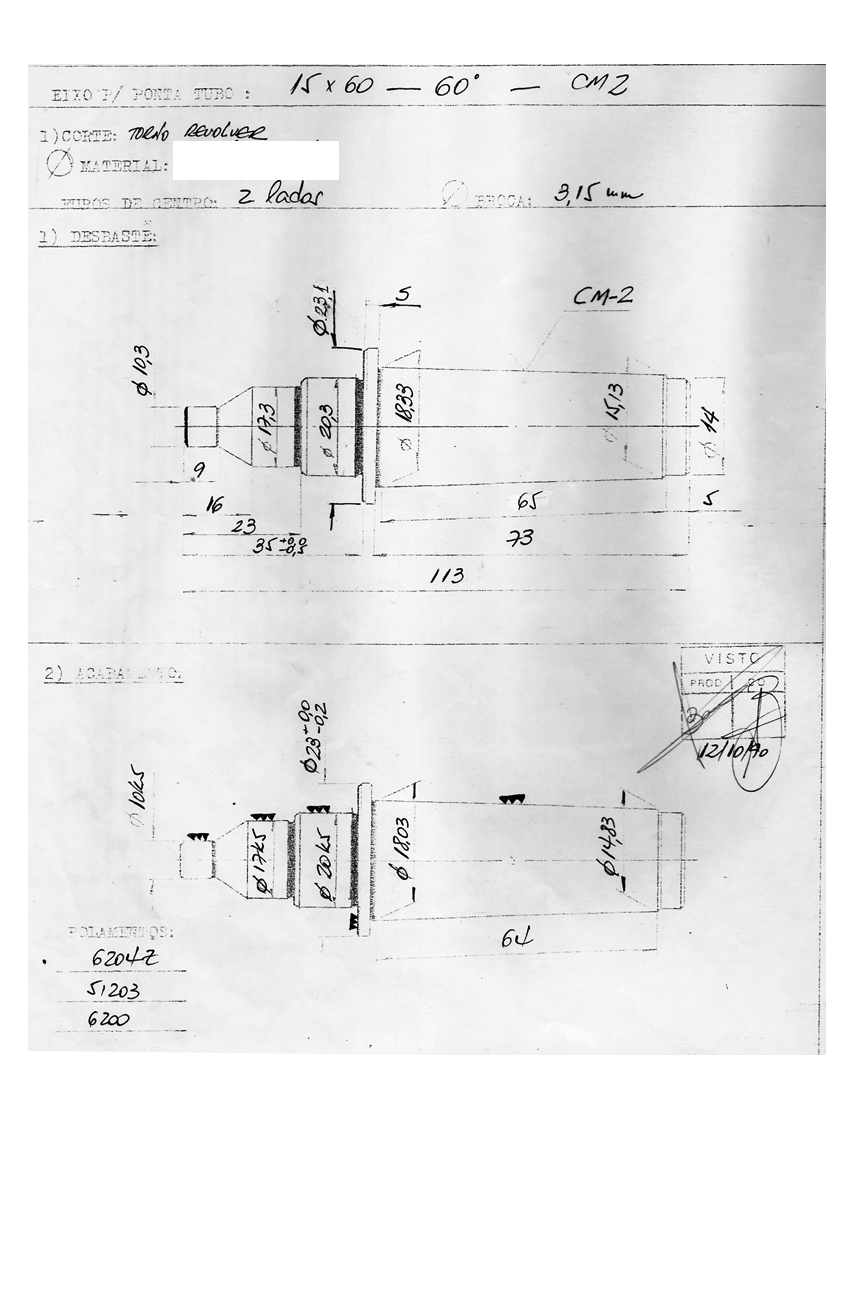 EIXO P/ PONTA TUBO: 15 x 60 — 60° — CM2
1) CORTE: TORNO REVOLVER
Ø MATERIAL:
FUROS DE CENTRO: 2 lados Ø BROCA: 3,15 mm
1) DESBASTE:
Ø 23,1
5
CM-2
Ø 10,3
Ø 17,3
Ø 20,3
Ø 18,33
Ø 15,13
Ø 14
9
16
65
5
23
35 +0,0 -0,5
73
113
2) ACABAMENTO:
VISTO
PROD
12/10/90
Ø 23 +0,0 -0,2
Ø 10k5
Ø 17k5
Ø 20k5
Ø 18,03
Ø 14,83
64
ROLAMENTOS:
6204Z
51203
6200